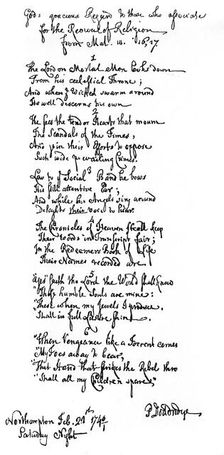 God's gracious Regard to those who associate
for the Revival of Religion
from Mal. III. 16, 17
1
The Lord on Mortal Men looks down
From his celestial Throne;
And when ye Wicked swarm around
He well discerns his own
2
He sees the tender Hearts that mourn
The Scandals of the Times,
And join their Efforts to oppose
Such wide prevailing Crimes.
Low to ye Social Band he bows
His still attentive Ear;
And while his Angels sing around
Delights their Voice to hear.
The Chronicles of Heaven shall keep
Their Words in Transcript fair;
In the Redeemer's Book of Life
Their Names recorded are
Yes saith the Lord the World shall
These humble Souls are mine:
These when my Jewels I produce,
Shall in full Lustre shine
"When Vengeance like a Torrent comes
My Foes away to bear,
"That Hand that strikes the Rebels thro
"Shall all my Children spare."
Northampton Feb.
Saturday Night
P Doddridge